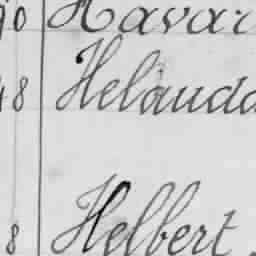 90 Havar
48 Helaudd
8 Helbert.